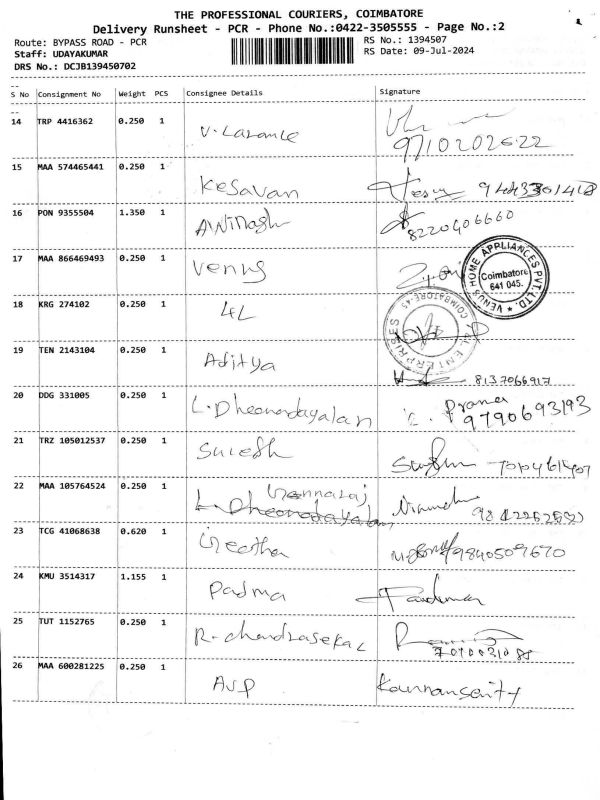 THE PROFESSIONAL COURIERS, COIMBATORE
Delivery Runsheet - PCR - Phone No.:0422-3505555 - Page No.:2
Route: BYPASS ROAD - PCR RS No.: 1394507
Staff: UDAYAKUMAR RS Date: 09-Jul-2024
DRS No.: DCJB139450702
S No Consignment No Weight PCS Consignee Details Signature
14 TRP 4416362 0.250 1
9710202622
15 MAA 574465441 0.250 1 Kesavan
16 PON 9355504 1.350 1 AWINash 8220406660
17 MAA 866469493 0.250 1 Venus
VENUS HOME APPLIANCES PVT. LTD.
Coimbatore
641 045.
18 KRG 274102 0.250 1 4L
ENTERPRISES
COIMBATORE-45
19 TEN 2143104 0.250 1 Aditya 8137066917
20 DDG 331005 0.250 1 L. Dheenadayalan 9790693193
21 TRZ 105012537 0.250 1 Suresh
22 MAA 105764524 0.250 1
23 TCG 41068638 0.620 1 9840509670
24 KMU 3514317 1.155 1 Padma
25 TUT 1152765 0.250 1 R. chandrasekar
26 MAA 600281225 0.250 1 AVP